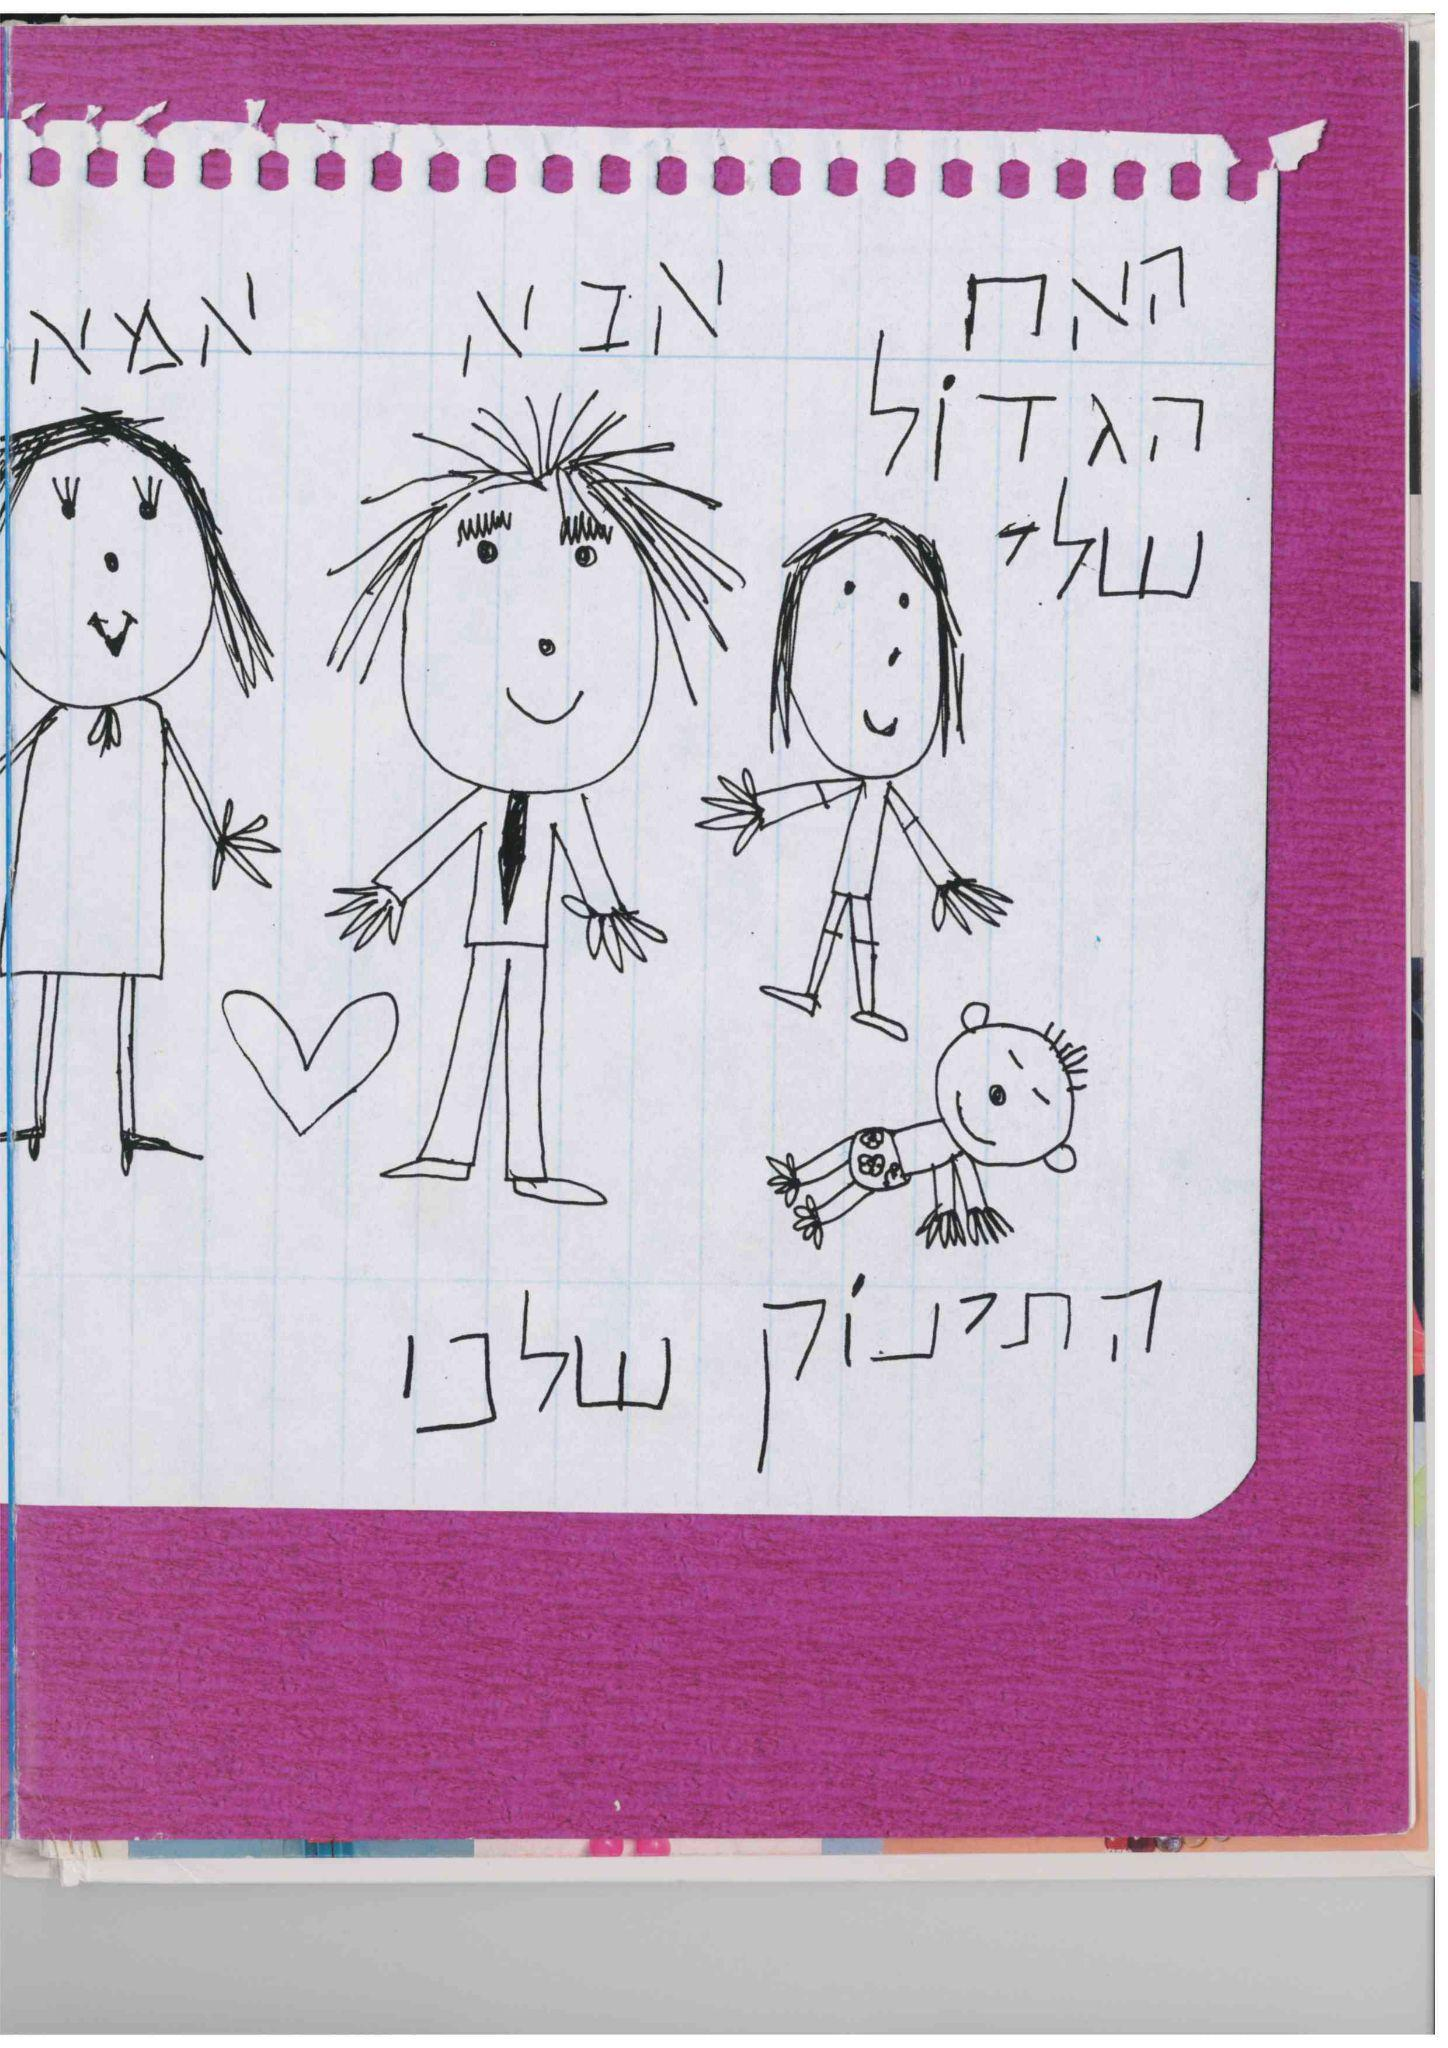 האח
הגדוֹל
שלי
אבא
אמא
התינוֹק שלנו